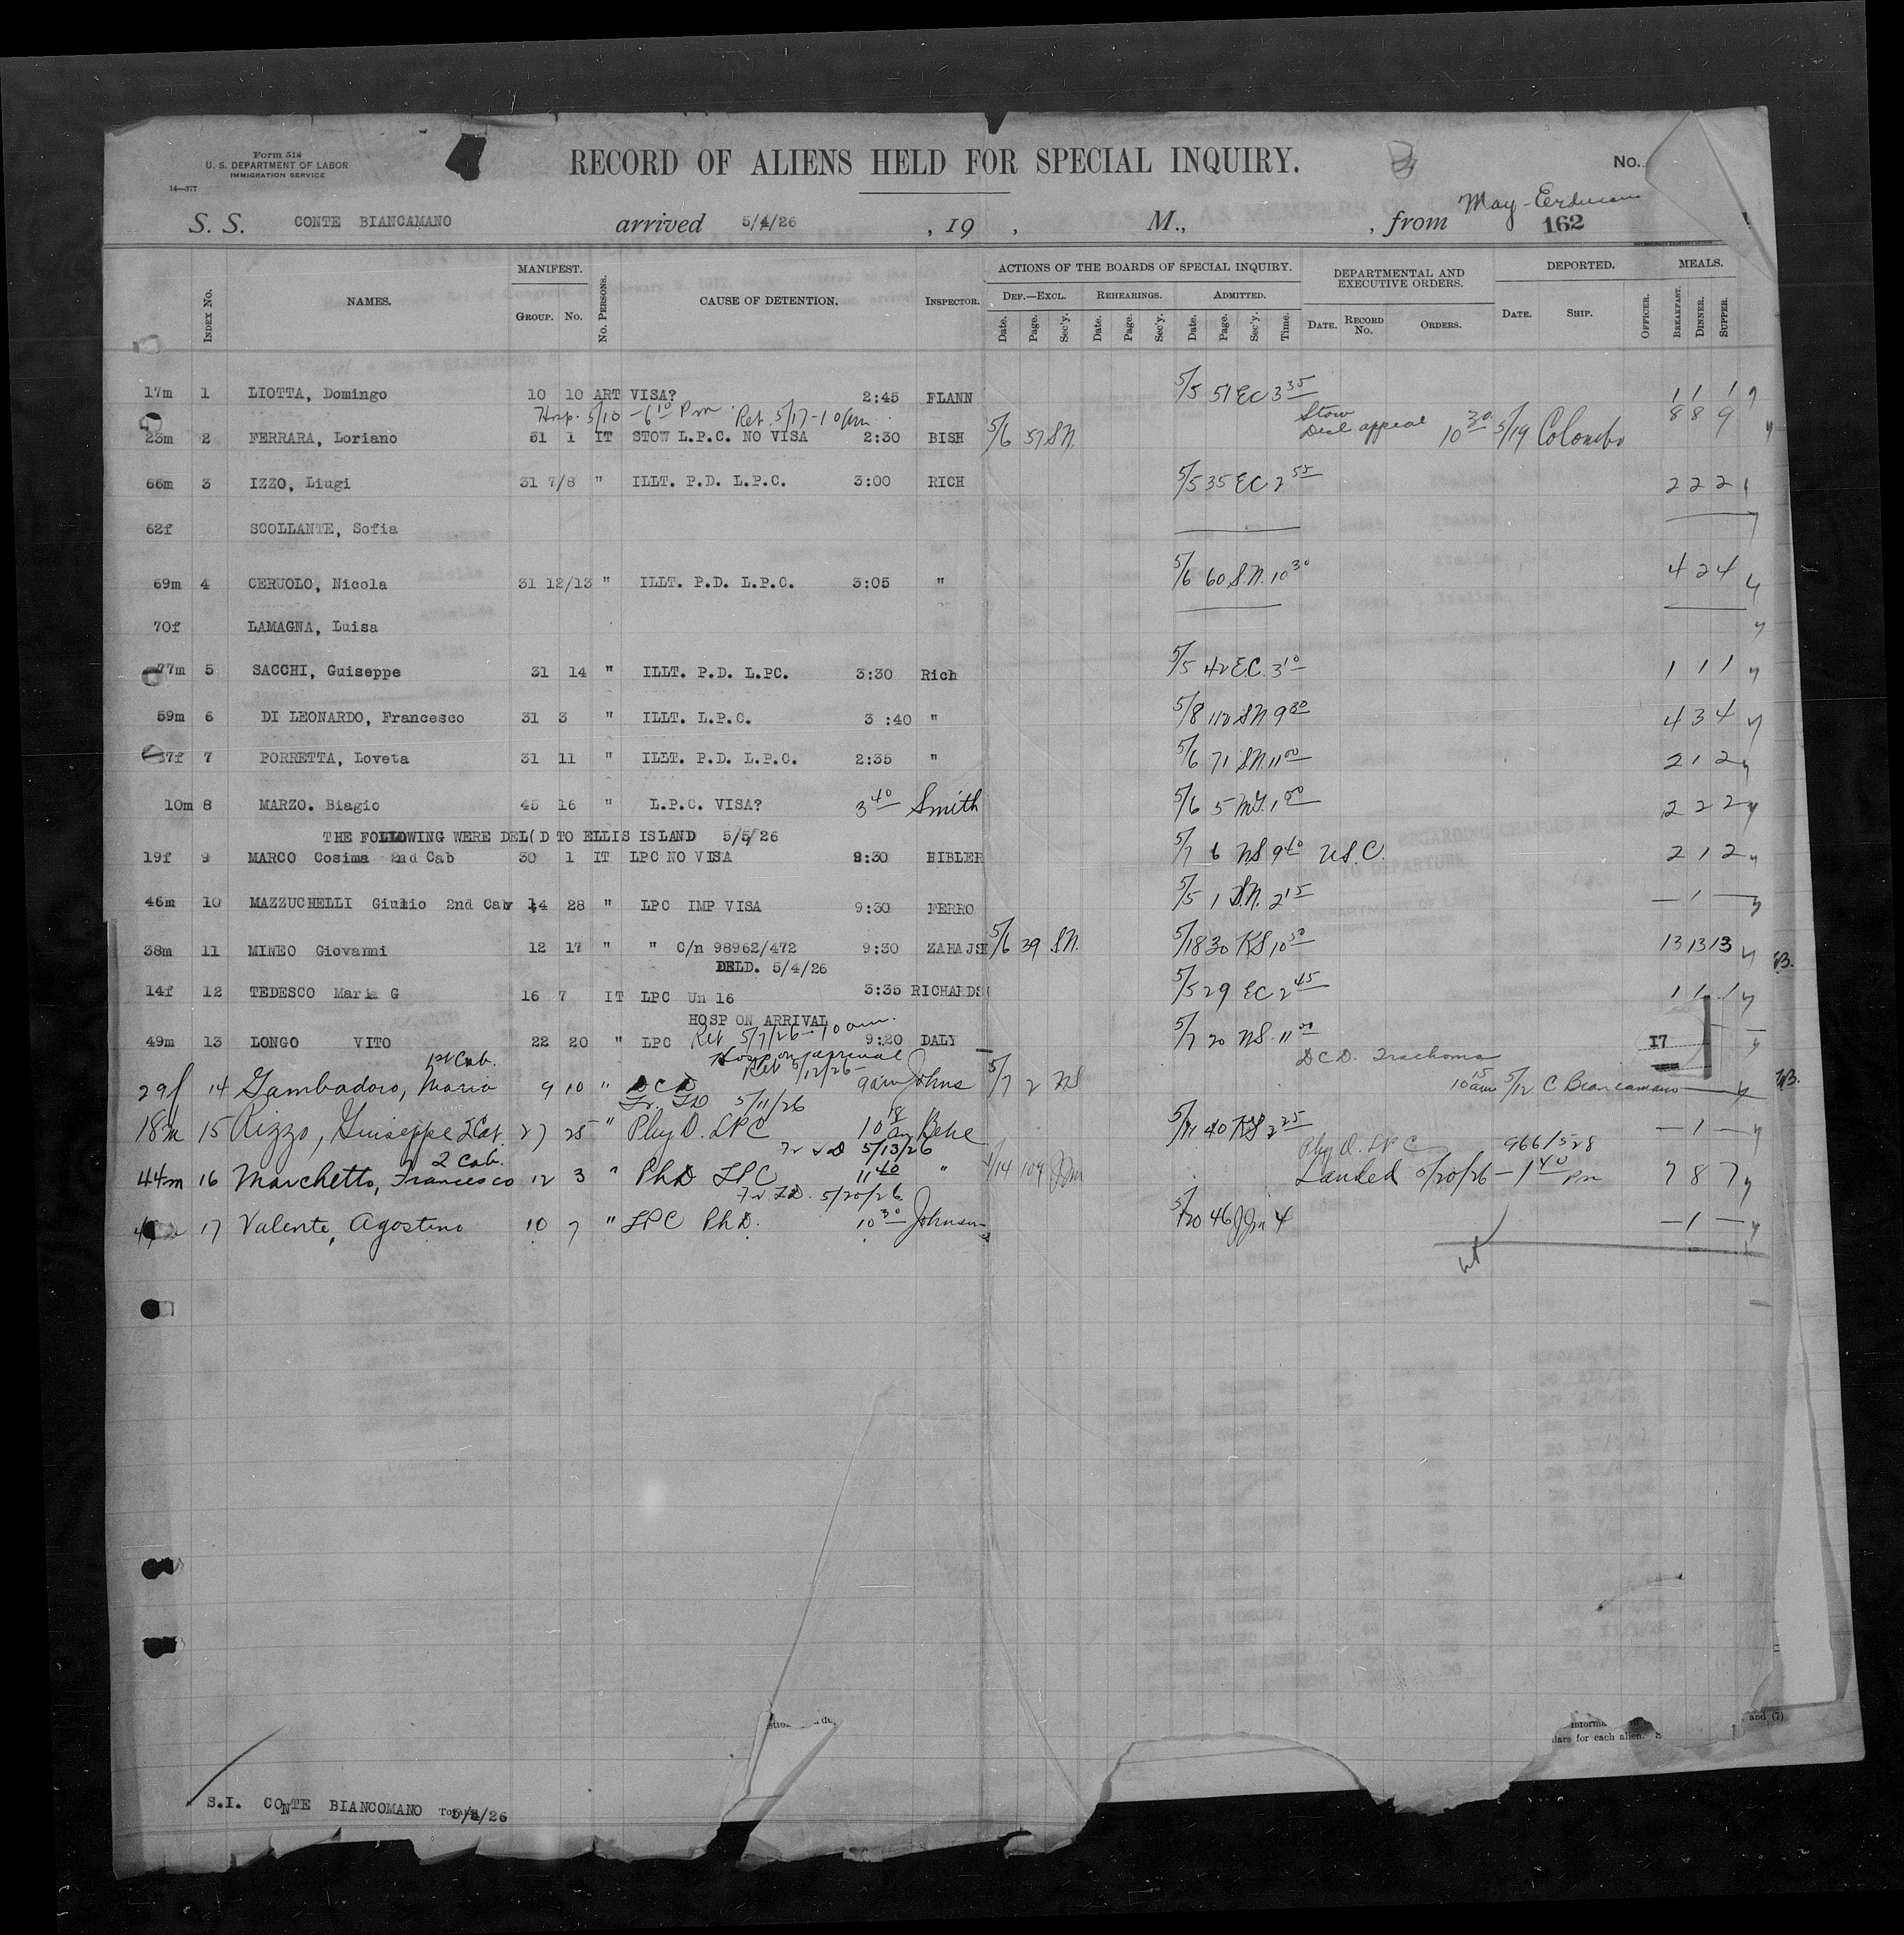 Form 514
U. S. DEPARTMENT OF LABOR
IMMIGRATION SERVICE
14—377
RECORD OF ALIENS HELD FOR SPECIAL INQUIRY.
No.
S. S. CONTE BIANCAMANO arrived 5/4/26 , 19 , M., , from May - Erdmann
162
INDEX NO. NAMES. MANIFEST. GROUP. NO. NO. PERSONS. CAUSE OF DETENTION. INSPECTOR. ACTIONS OF THE BOARDS OF SPECIAL INQUIRY. DEPARTMENTAL AND EXECUTIVE ORDERS. DEPORTED. MEALS.
DEF.—EXCL. REHEARINGS. ADMITTED.
Date. Page. Sec'y. Date. Page. Sec'y. Date. Page. Sec'y. Time. DATE. RECORD No. ORDERS. DATE. SHIP. OFFICER. BREAKFAST. DINNER. SUPPER.
17m 1 LIOTTA, Domingo 10 10 ART VISA? 2:45 FLANN 5/5 51 EC 3 35 1 1 1 y
Hosp. 5/10 - 6 10 Pm Ret. 5/17 - 10 am Stow
23m 2 FERRARA, Loriano 51 1 IT STOW L.P.C. NO VISA 2:30 BISH 5/6 57 SN. Disd appeal 10 30 5/19 Colombo 8 8 9 y
66m 3 IZZO, Liugi 31 7/8 " ILLT. P.D. L.P.C. 3:00 RICH 5/5 35 EC 2 55 2 2 2 y
62f SCOLLANTE, Sofia y
69m 4 CERUOLO, Nicola 31 12/13 " ILLT. P.D. L.P.C. 3:05 " 5/6 60 S.N. 10 30 4 2 4 y
70f LAMAGNA, Luisa y
77m 5 SACCHI, Guiseppe 31 14 " ILLT. P.D. L.PC. 3:30 Rich 5/5 42 E.C. 3 10 1 1 1 y
59m 6 DI LEONARDO, Francesco 31 3 " ILLT. L.P.C. 3 :40 " 5/8 112 SN 9 30 4 3 4 y
37f 7 PORRETTA, Loveta 31 11 " ILLT. P.D. L.P.C. 2:35 " 5/6 71 S.N. 11 00 2 1 2 y
10m 8 MARZO. Biagio 45 16 " L.P.C. VISA? 3 40 Smith 5/6 5 1 00 2 2 2 y
THE FOLLOWING WERE DEL(D TO ELLIS ISLAND 5/5/26
19f 9 MARCO Cosima 2nd Cab 30 1 IT LPC NO VISA 9:30 HIBLER 5/7 6 NS 9 40 U.S.C. 2 1 2 y
46m 10 MAZZUCHELLI Giulio 2nd Cab 14 28 " LPC IMP VISA 9:30 FERRO 5/5 1 S.N. 2 15 — 1 — y
38m 11 MINEO Giovanni 12 17 " " C/n 98962/472 9:30 ZAHAJSK 5/6 39 S.N. 5/18 30 KS 10 50 13 13 13 y
DELD. 5/4/26
14f 12 TEDESCO Maria G 16 7 IT LPC Un 16 3:35 RICHARDS( 5/5 29 EC 2 45 1 1 1 y
HOSP ON ARRIVAL
Ret 5/7/26 - 10 am.
49m 13 LONGO VITO 22 20 " LPC 9:20 DALY 5/7 20 NS. 11 00 17 y
1st Cab. Hosp on arrival Ret 5/12/26 - DCD. Trachoma
29f 14 Gambadoro, Maria 9 10 " DCD 9 am Johns 5/7 2 NS 10 15 am 5/12 C Biancamano y
Tr. TD 5/11/26
18m 15 Rizzo, Giuseppe 2 Cab. 27 25 " Phy D. LPC 10 18 am Behe 5/11 40 KS 2 25 — 1 — y
2 Cab. Tr TD 5/13/26 Phy D. LPC 966/528
44m 16 Marchetto, Francesco 12 3 " PhD LPC 11 40 " 5/14 109 JJm Landed 5/20/26 - 1 40 Pm 7 8 7 y
Tr TD. 5/20/26
17 Valente, Agostino 10 7 " LPC PhD. 10 30 Johnson 5/20 46 JJm 4 — 1 — y
informa
and (7)
dars for each alien.
S.I. CONTE BIANCOMANO 5/4/26